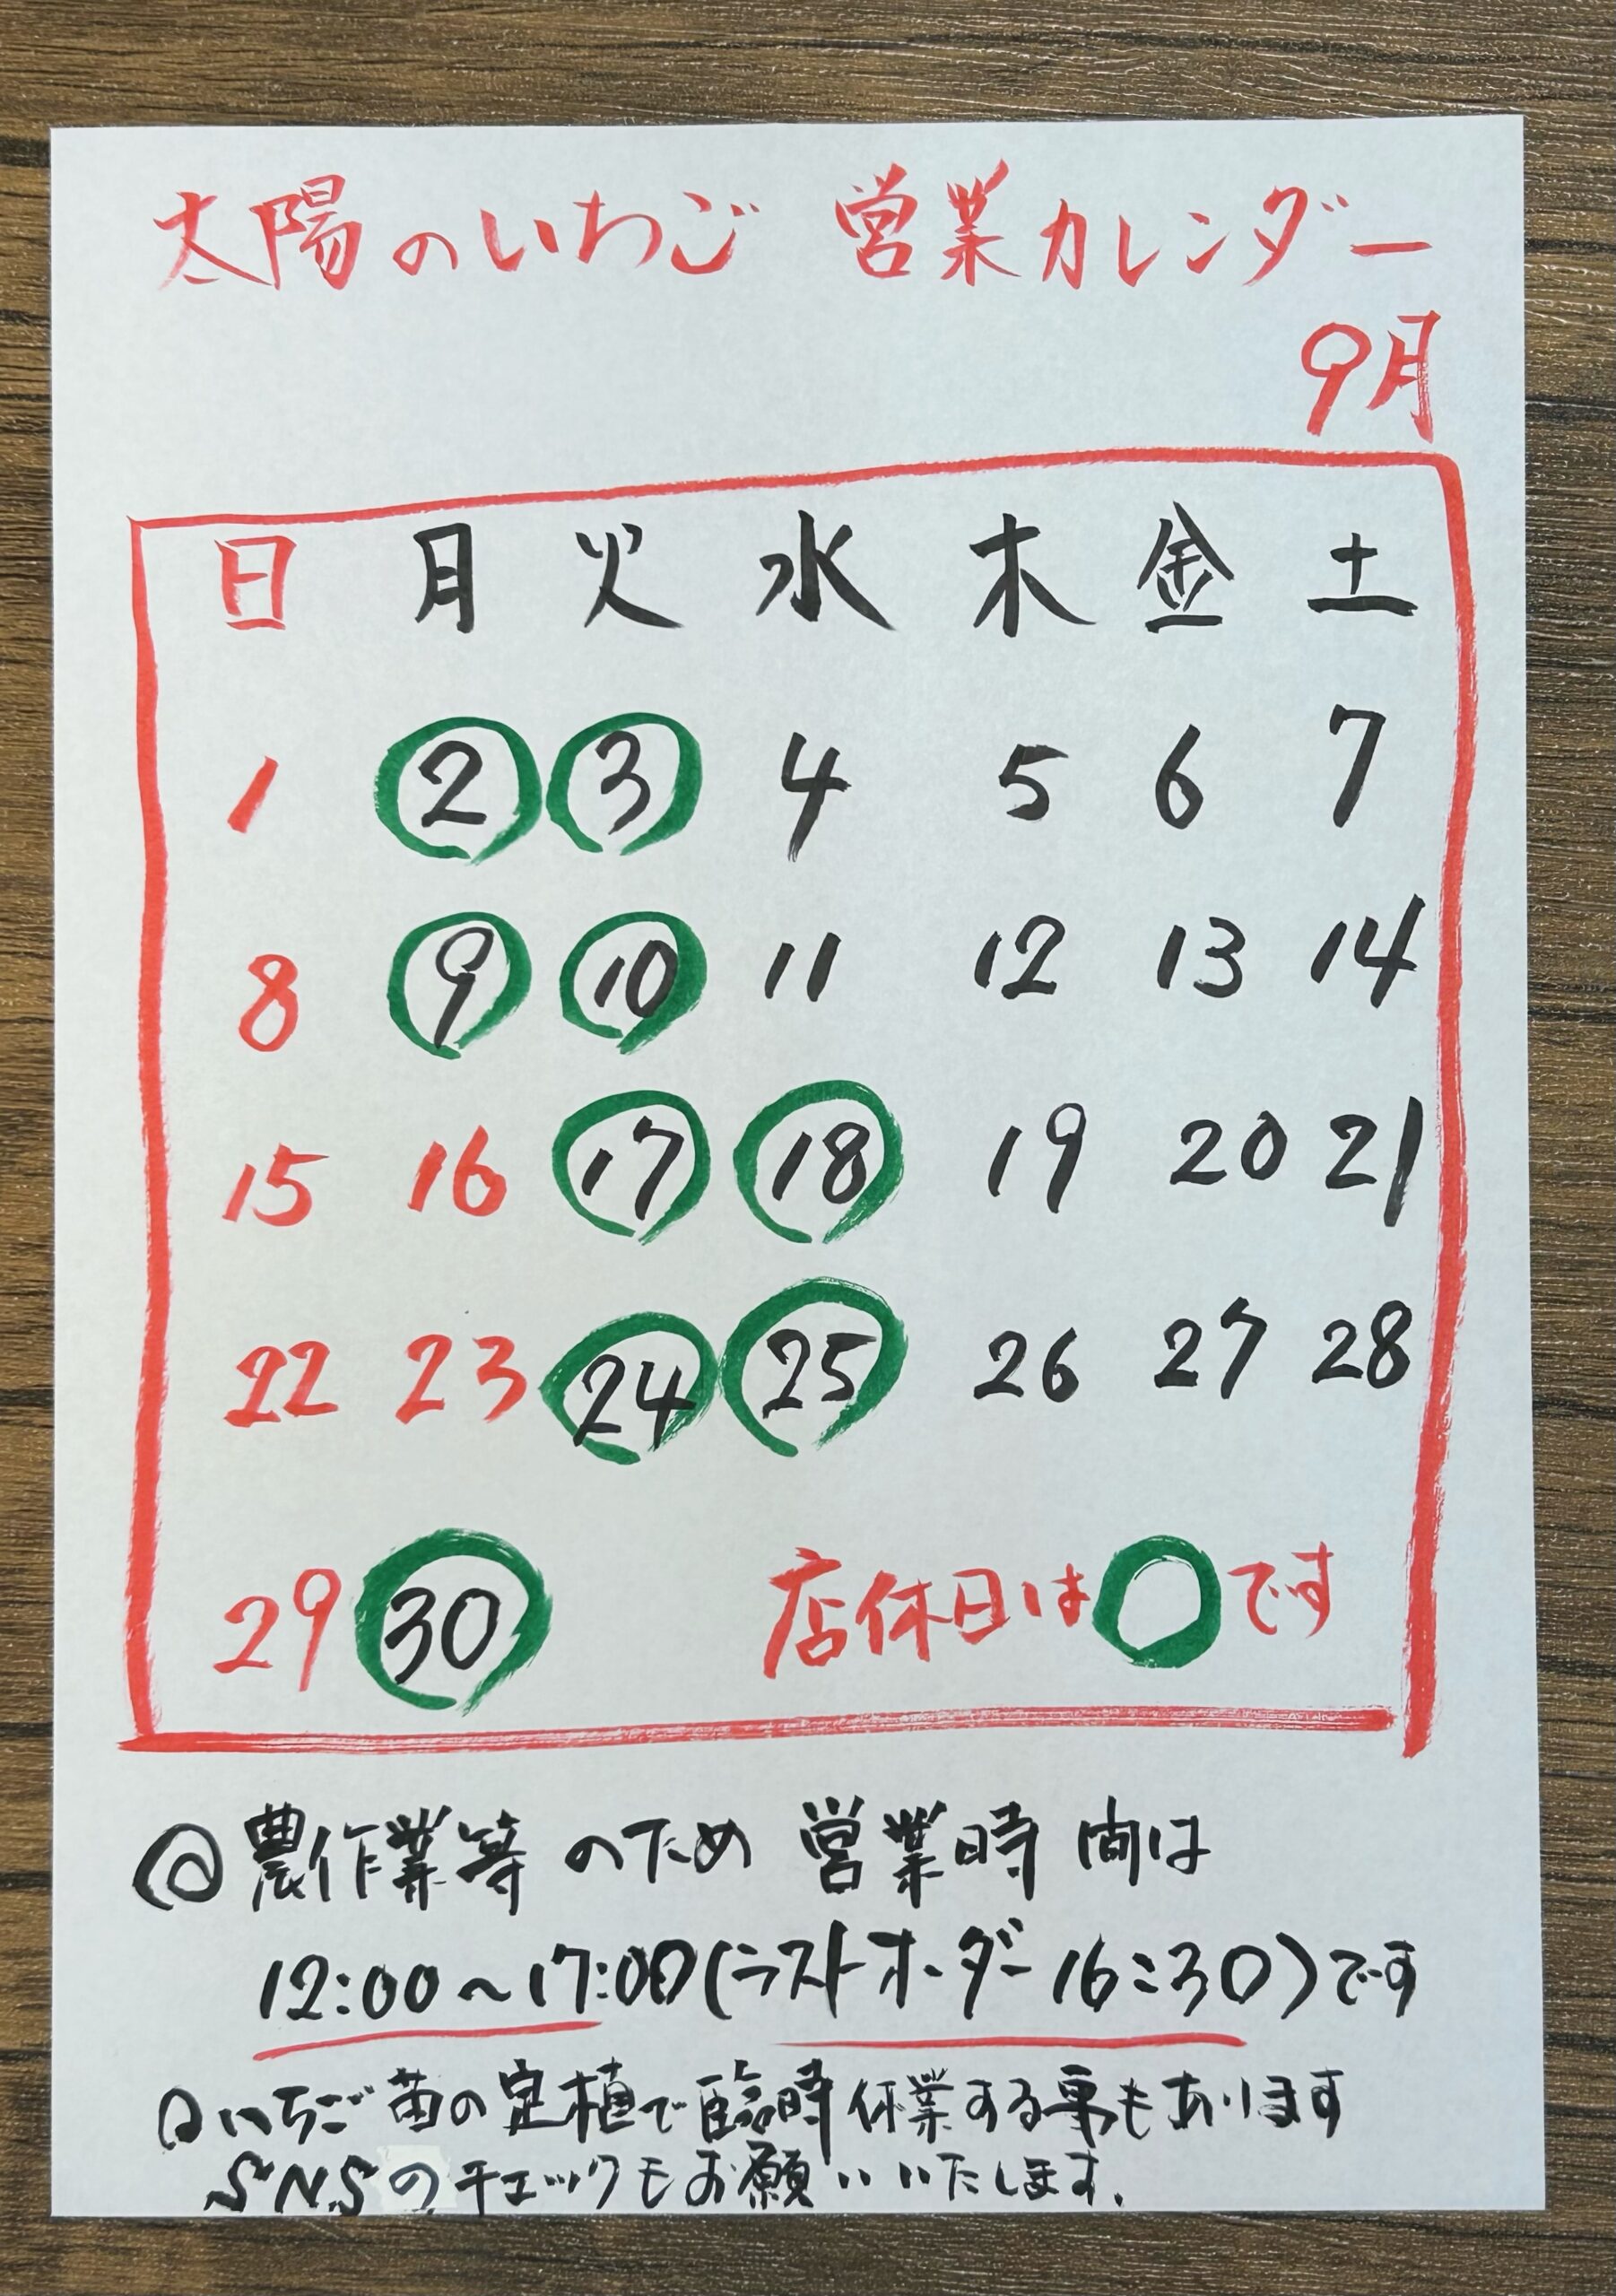 太陽のいちご 営業カレンダー
9月
日 月 火 水 木 金 土
1 2 3 4 5 6 7
8 9 10 11 12 13 14
15 16 17 18 19 20 21
22 23 24 25 26 27 28
29 30 店休日は○です
◎農作業等のため営業時間は
12:00~17:00(ラストオーダー16:30)です
◎いちご苗の定植で臨時休業する事もあります
SNSのチェックもお願いいたします.